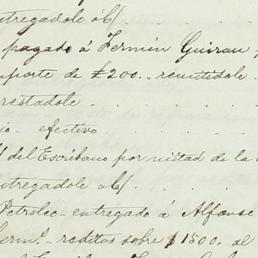 entregadole ó/
pagado á Fermín Guirau
importe de £200.. remitidole
prestadole
efectivo
del Escribano por mitad de la
entregadole ó/
Petroleo - entregado á Alfonso
Germº. - reditos sobre $1500. al